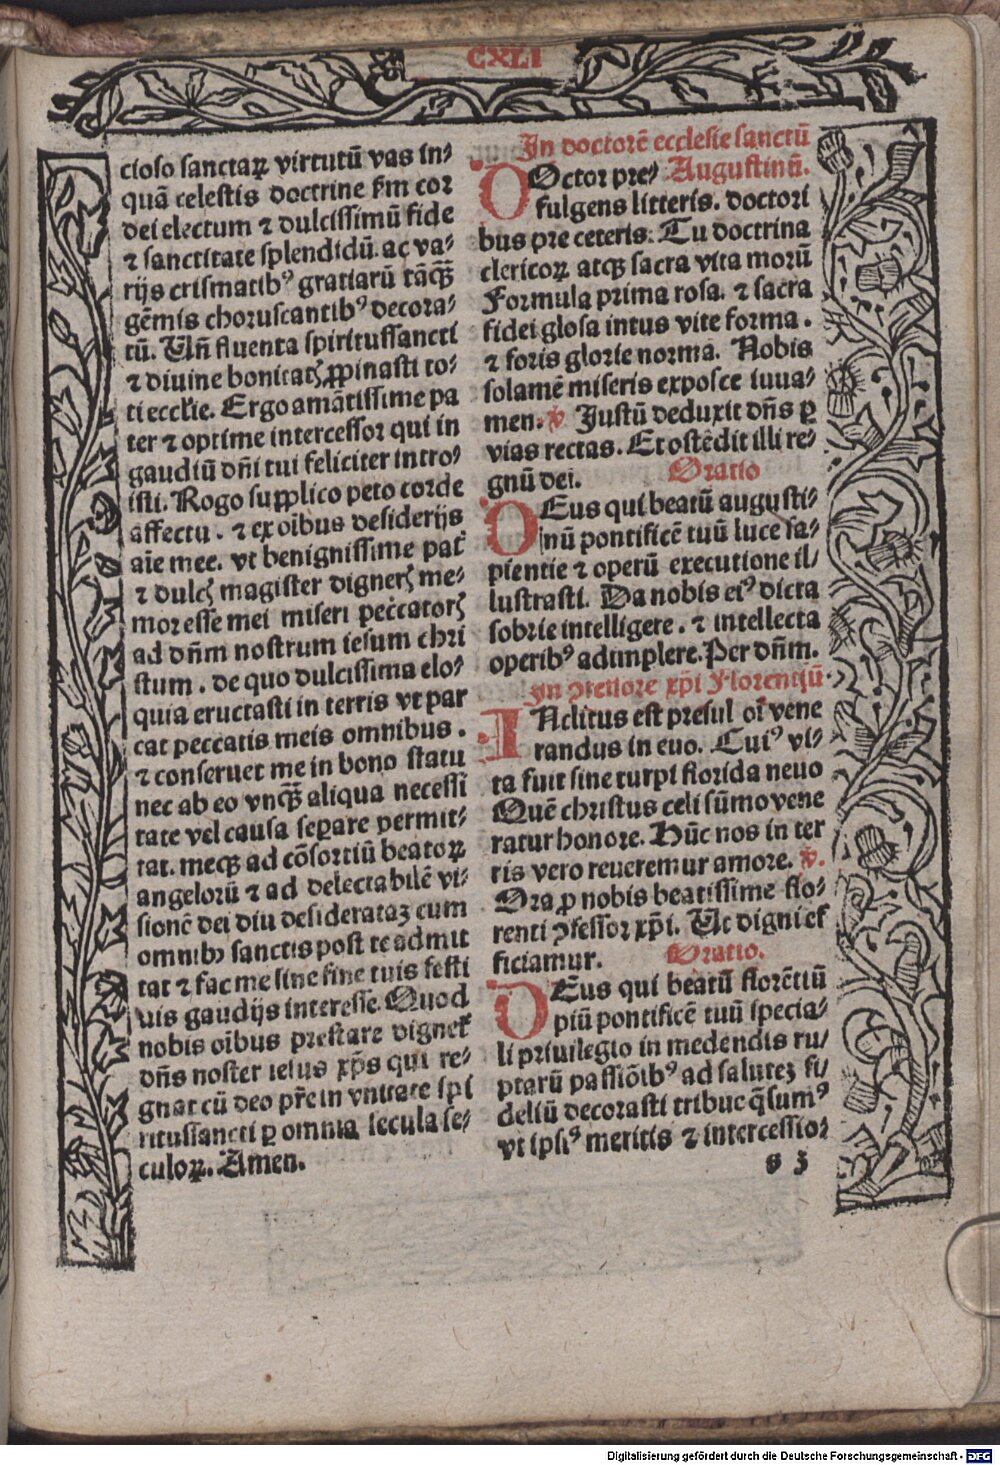 CXLI
cioso sanctaꝝ virtutū vas in⸗
quā celestis doctrine ẜm cor
dei electum ⁊ dulcissimū fide
⁊ sanctitate splendidū. ac va⸗
rijs crismatibꝰ gratiarū tāqꝫ̄
gēmis choruscantibꝰ decora⸗
tū. Vn̄ fluenta spiritussancti
⁊ diuine bonitatꝭ ꝓpinasti to⸗
ti eccłie. Ergo amātissime pa
ter ⁊ optime intercessor qui in
gaudiū dn̄i tui feliciter intro⸗
isti. Rogo supplico peto corde
affectu. ⁊ ex oībus desiderijs
aīe mee. vt benignissime pat̄
⁊ dulcꝭ magister dignerꝭ me⸗
mor esse mei miseri peccatorꝭ
ad dn̄m nostrum iesum chri
stum. de quo dulcissima elo⸗
quia eructasti in terris vt par
cat peccatis meis omnibus.
⁊ conseruet me in bono statu
nec ab eo vnqꝫ̄ aliqua necessi
tate vel causa seꝑare permit⸗
tat. meqꝫ ad cōsortiū beatoꝝ
angelorū ⁊ ad delectabilē vi⸗
sionē dei diu desideratāꝫ cum
omnibꝫ sanctis post te admit
tat ⁊ fac me sine fine tuis festi
uis gaudijs interesse. Quod
nobis oībus prestare dignet̄
dn̄s noster iesus xp̄s qui re⸗
gnat cū deo pr̄e in vnitate spi
ritussancti ꝑ omnia secula se⸗
culoꝝ. Amen.
In doctorē ecclesie sanctū
Augustinū.
DOctor pre⸗
fulgens litteris. doctori
bus pre ceteris. Tu doctrina
clericoꝝ atqꝫ sacra vita morū
Formula prima rosa. ⁊ sacra
fidei glosa intus vite forma.
⁊ foris glorie norma. Nobis
solamē miseris exposce iuua⸗
men. ꝟ Justū deduxit dn̄s ꝑ
vias rectas. Et ostēdit illi re⸗
gnū dei. Oratio
DEus qui beatū augusti⸗
nū pontificē tuū luce sa⸗
pientie ⁊ operū executione il⸗
lustrasti. Da nobis eiꝰ dicta
sobrie intelligere. ⁊ intellecta
operibꝰ adimplere. Per dn̄m.
In ꝯfessore xp̄i Florentiū.
INclitus est presul oī vene
randus in euo. Cuiꝰ vi⸗
ta fuit sine turpi florida neuo
Quē christus celi sūmo vene
ratur honore. Hūc nos in ter
ris vero reueremur amore. ꝟ.
Ora ꝓ nobis beatissime flo⸗
renti ꝯfessor xp̄i. Vt digni ef
ficiamur. Oratio.
DEus qui beatū florētiū
piū pontificē tuū specia⸗
li priuilegio in medendis ru⸗
ptarū passiōibꝰ ad salutēꝫ fi⸗
deliū decorasti tribue q̄sumꝰ
vt ipsiꝰ meritis ⁊ intercessioꝛ
s 3
Digitalisierung gefördert durch die Deutsche Forschungsgemeinschaft - DFG